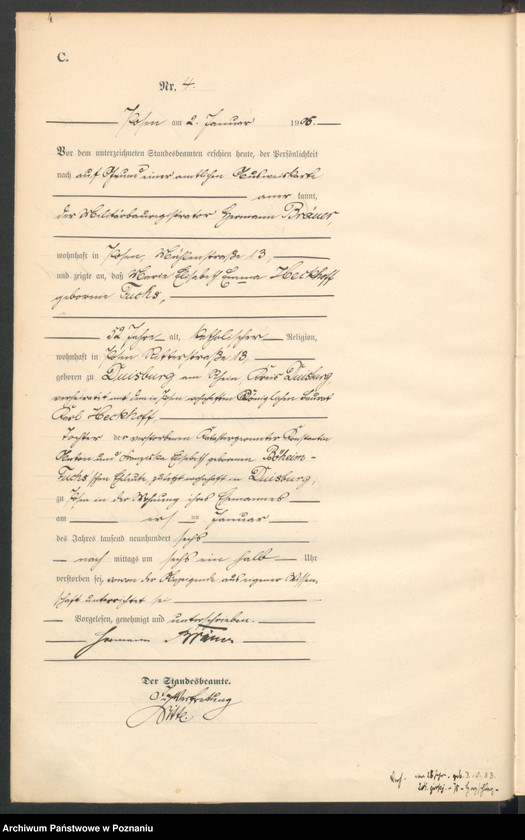 4
C.
Nr. 4.
Posen am 2. Januar 1906.
Vor dem unterzeichneten Standesbeamten erschien heute, der Persönlichkeit
nach auf Grund einer amtlichen Ausweiskarte
aner kannt,
der Militärbauregistrator Hermann Bräuer,
wohnhaft in Posen, Mühlenstraße 13,
und zeigte an, daß Maria Elisabeth Emma Heckhoff
geborene Fuchs,
52 Jahre alt, katholischer Religion,
wohnhaft in Posen Ritterstraße 13,
geboren zu Duisburg am Rhein, Kreis Duisburg,
verheiratet mit dem in Posen wohnhaften Königlichen Baurat
Karl Heckhoff,
Tochter der verstorbenen Katastergeometer Konstantin
Anton und Franziska Elisabeth geborenen Böheim-
Fuchs'schen Eheleute, zuletzt wohnhaft in Duisburg,
zu Posen in der Wohnung ihres Ehemannes
am ersten Januar
des Jahres tausend neunhundert sechs
nach mittags um sechs ein halb Uhr
verstorben sei, wovon der Anzeigende aus eigener Wissen-
schaft unterrichtet sei
Vorgelesen, genehmigt und unterschrieben.
Hermann Bräuer
Der Standesbeamte.
In Vertretung
Witte.
Archiwum Państwowe w Poznaniu